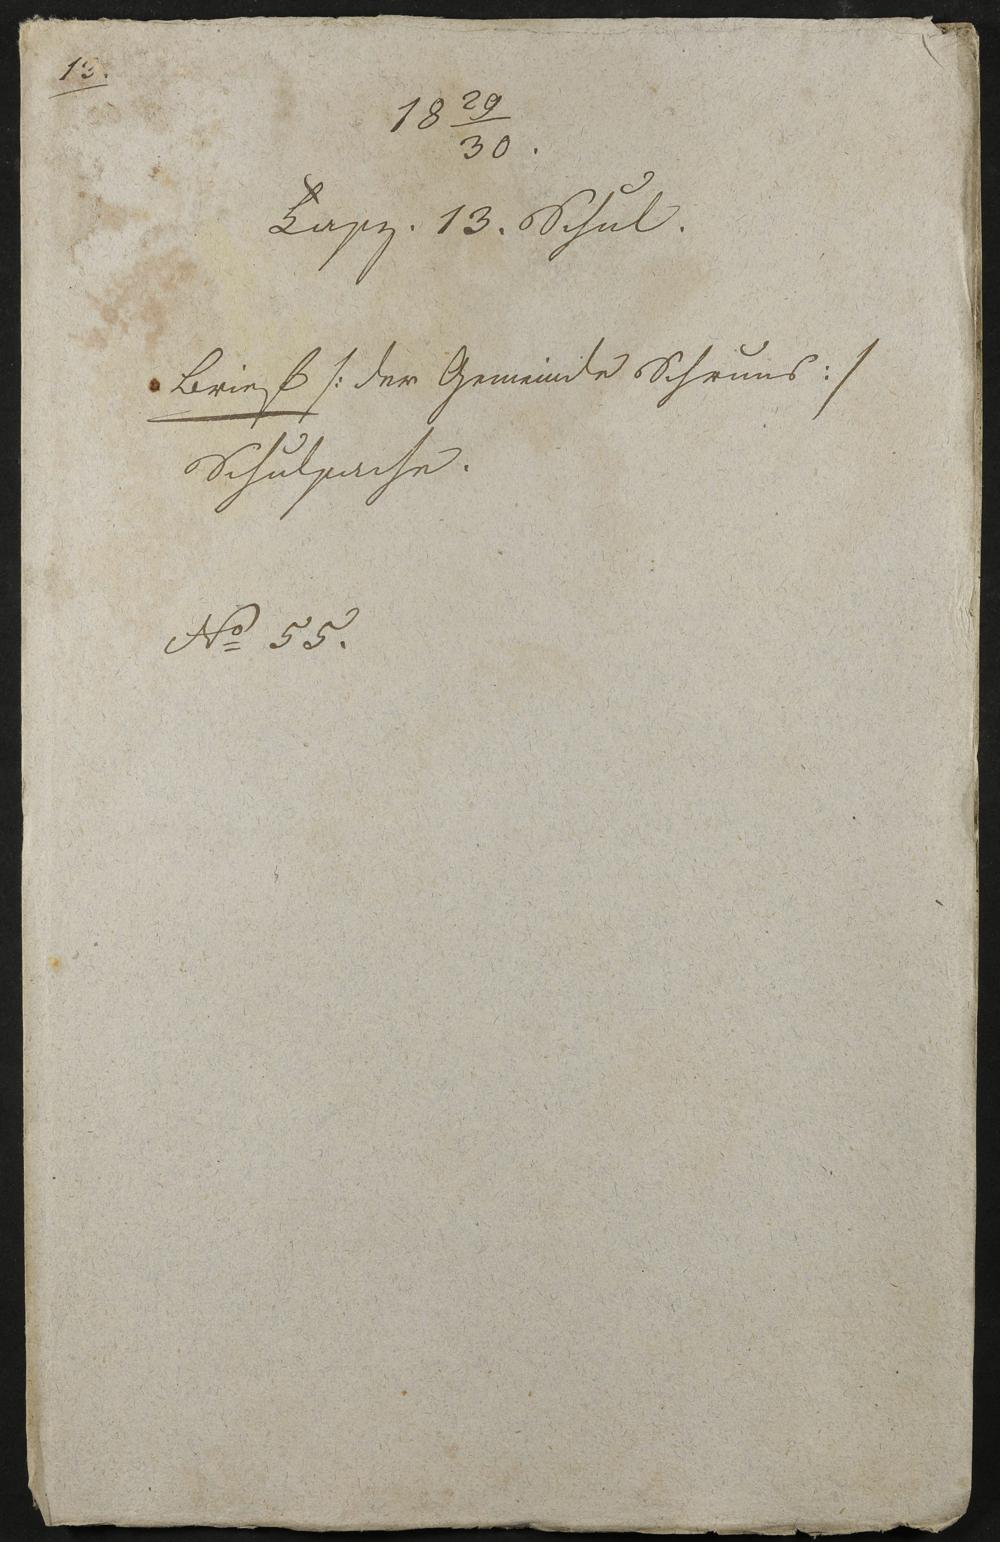 13.
18 29/30.
Fasz. 13. Schul.
/: der Gemeinde Schruns :/
Schulsache.
No 55.